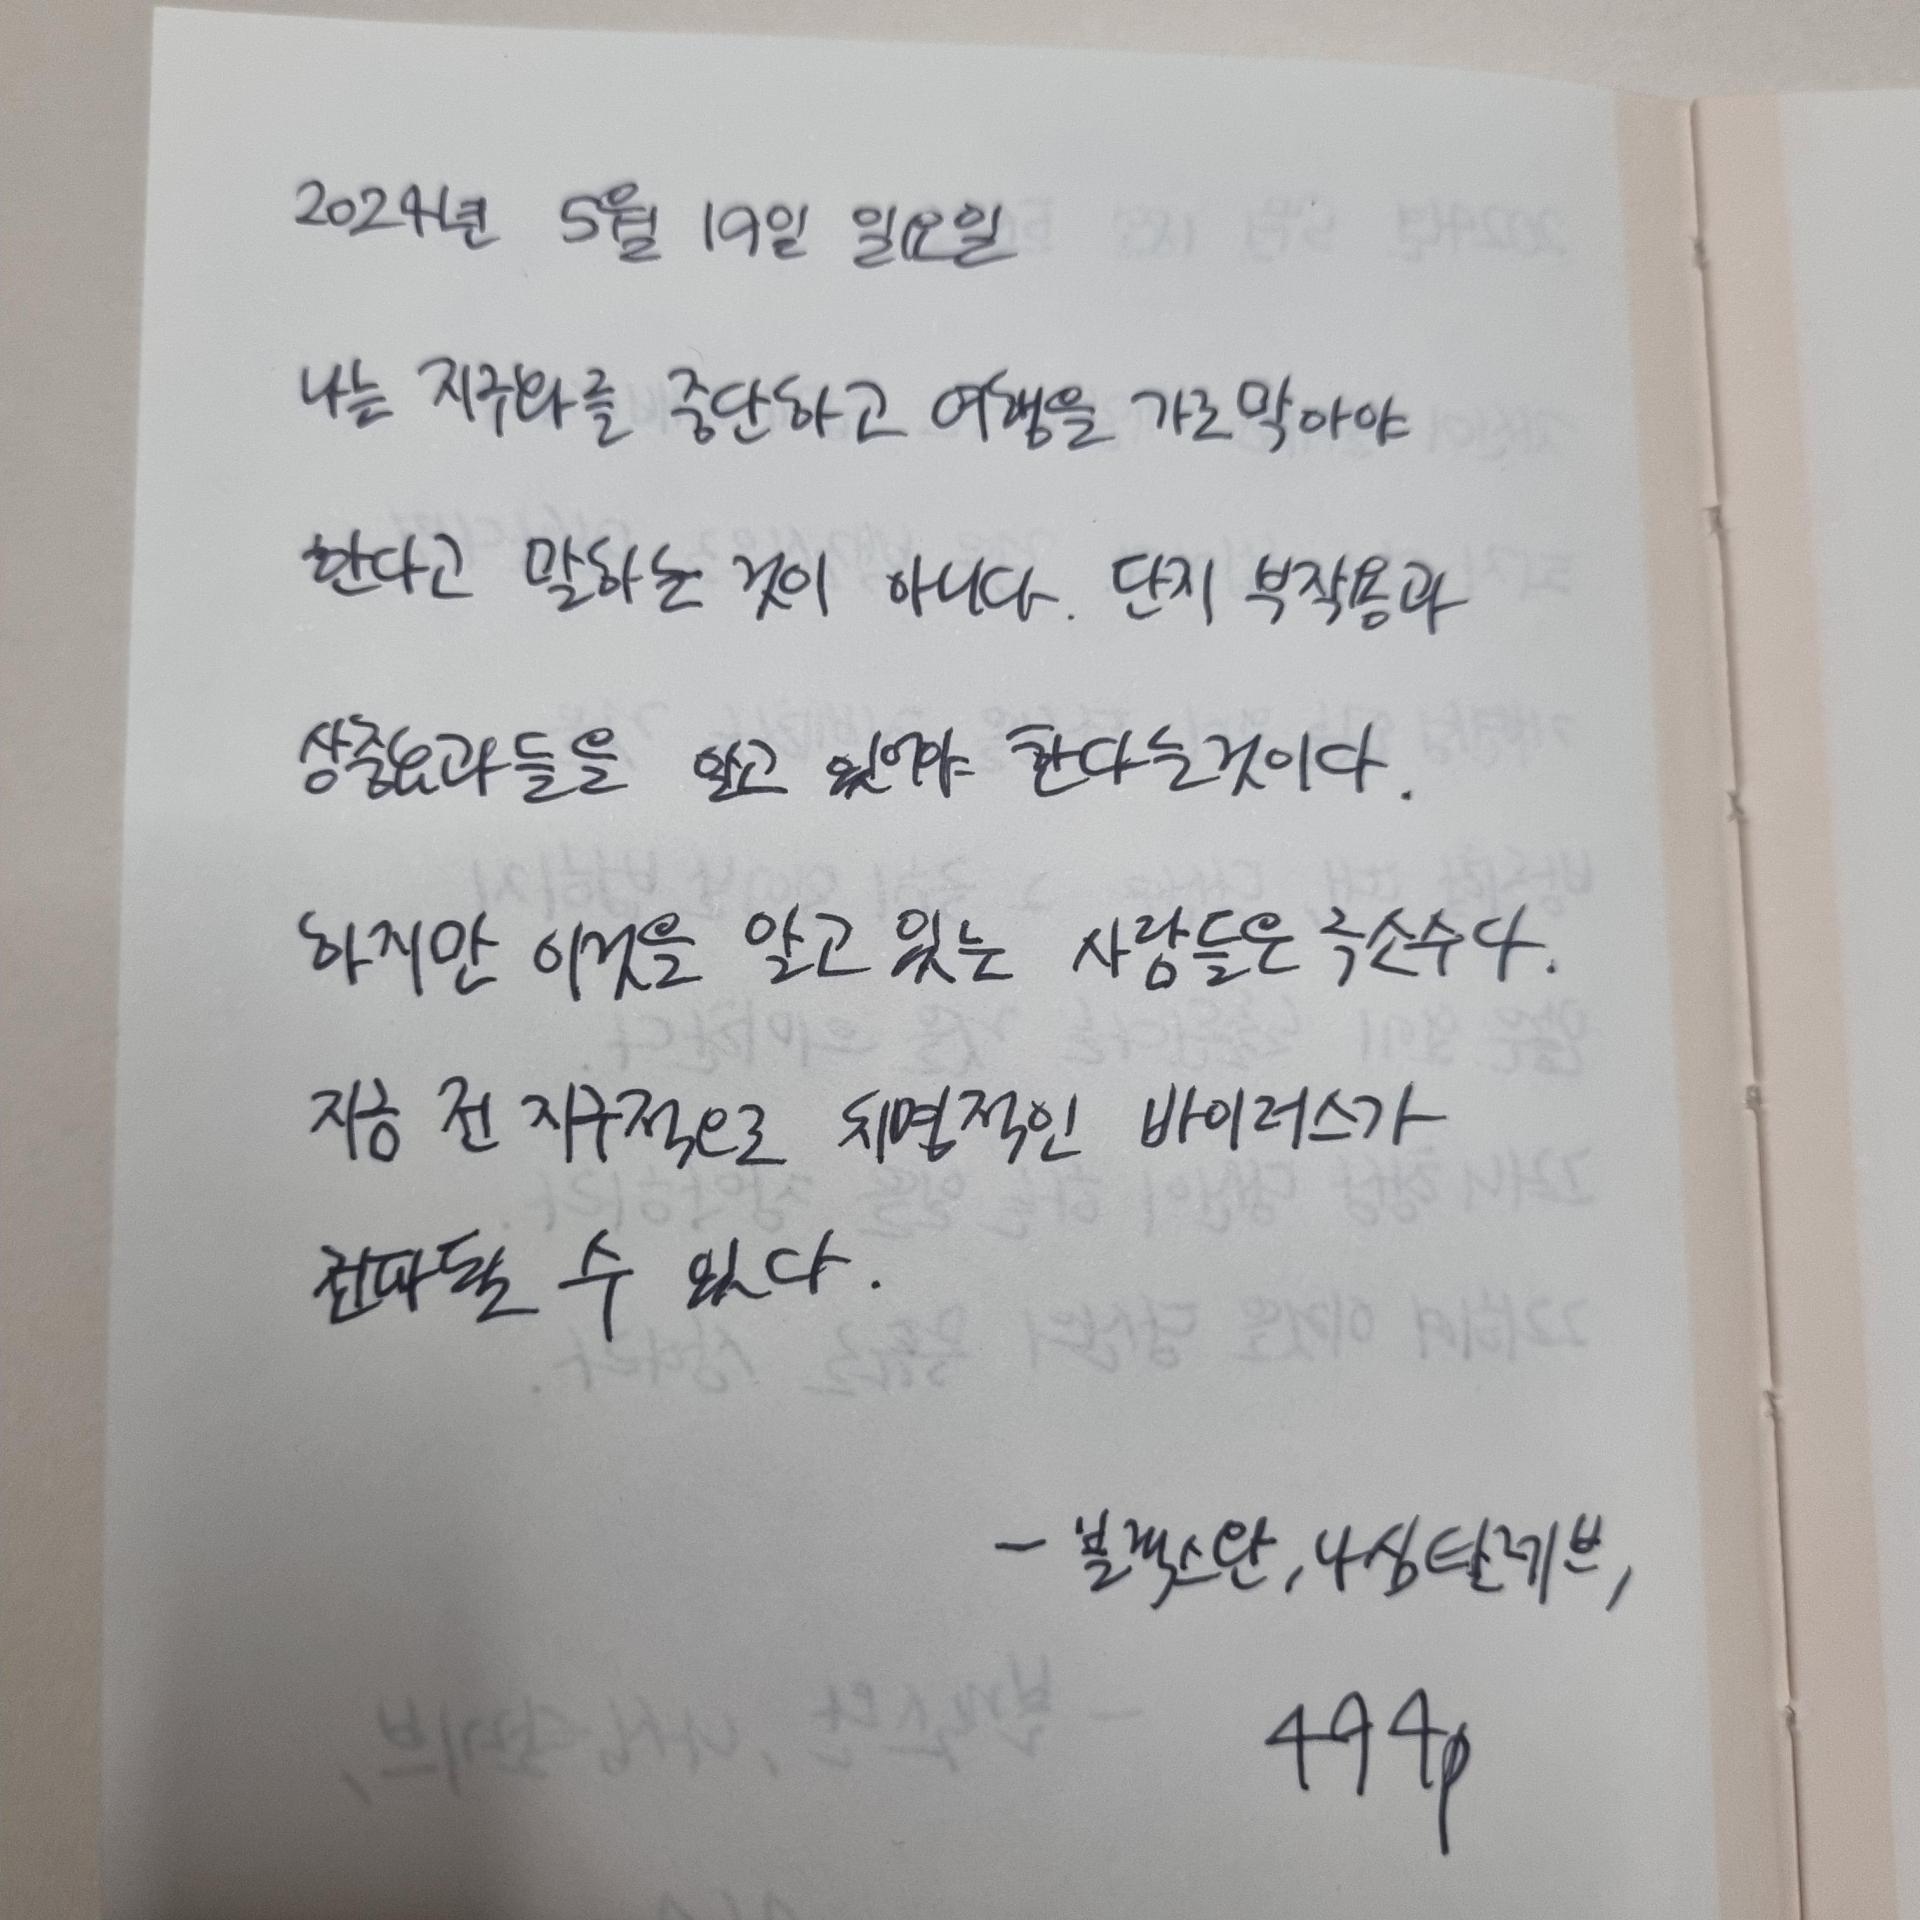 2024년 5월 19일 일요일
나는 지구화를 중단하고 여행을 가로막아야
한다고 말하는 것이 아니다. 단지 부작용과
상충효과들을 알고 있어야 한다는것이다.
하지만 이것을 알고 있는 사람들은 극소수다.
지금 전 지구적으로 치명적인 바이러스가
전파될 수 있다.
- 블랙스완, 나심탈레브,
494p